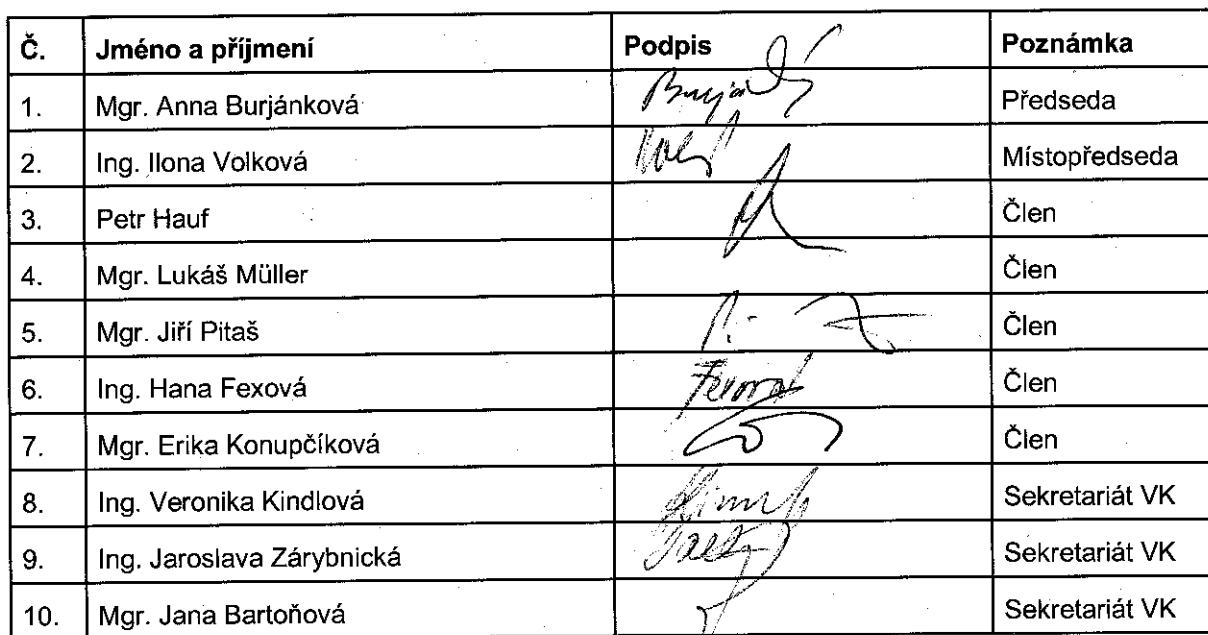 Č. Jméno a příjmení Podpis Poznámka
1. Mgr. Anna Burjánková Předseda
2. Ing. Ilona Volková Místopředseda
3. Petr Hauf Člen
4. Mgr. Lukáš Müller Člen
5. Mgr. Jiří Pitaš Člen
6. Ing. Hana Fexová Člen
7. Mgr. Erika Konupčíková Člen
8. Ing. Veronika Kindlová Sekretariát VK
9. Ing. Jaroslava Zárybnická Sekretariát VK
10. Mgr. Jana Bartoňová Sekretariát VK